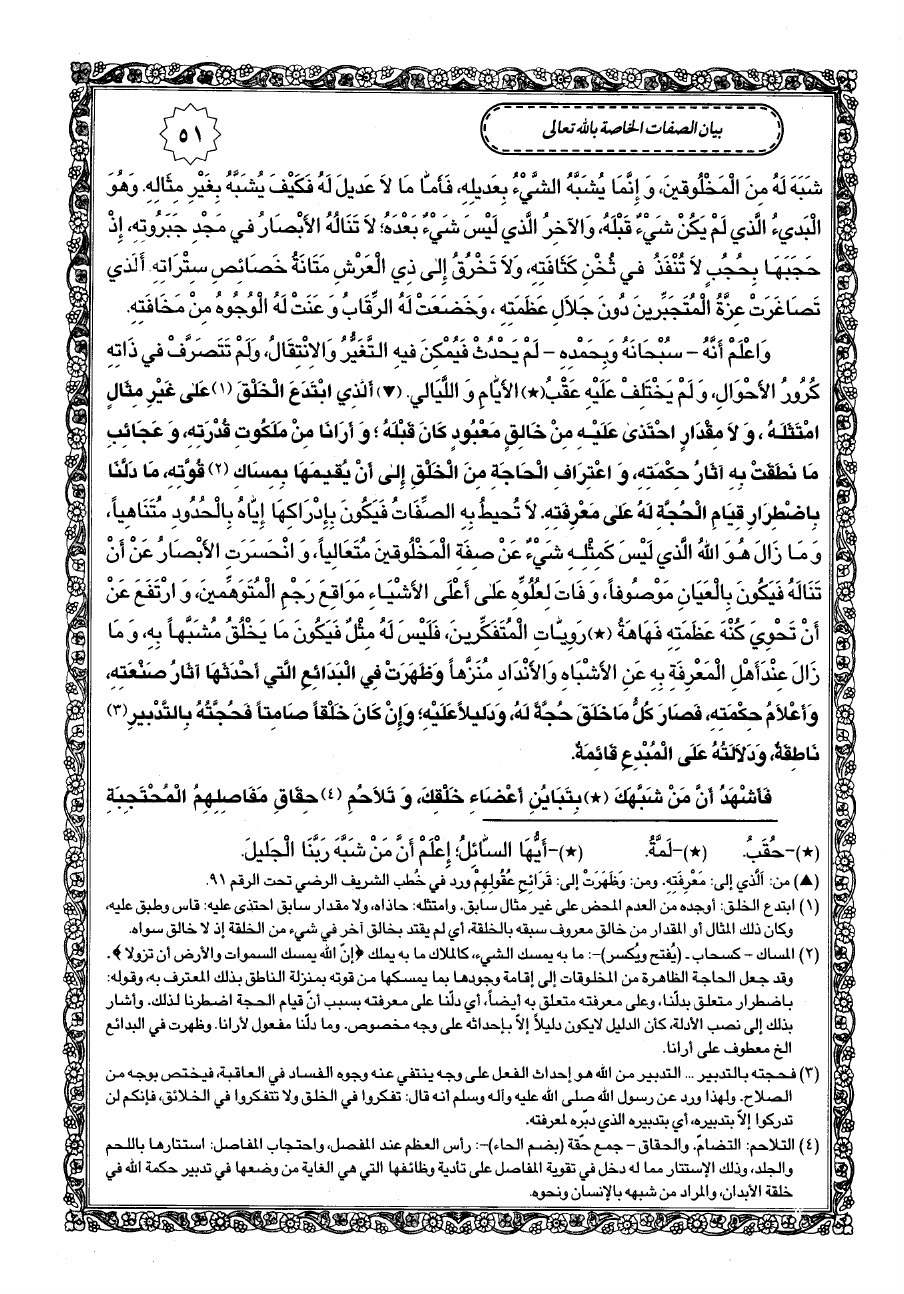 بيان الصفات الخاصة بالله تعالى
٥١
شَبَهَ لَهُ مِنَ الْمَخْلُوقينَ، وَ إِنَّمَا يُشَبَّهُ الشَّيْءُ بِعَديلِهِ، فَأَمّا مَا لاَ عَديلَ لَهُ فَكَيْفَ يُشَبَّهُ بِغَيْرِ مِثَالِهِ. وَهُوَ
الْبَديءُ الَّذي لَمْ يَكُنْ شَيْءٌ قَبْلَهُ، وَالآخِرُ الَّذي لَيْسَ شَيْءٌ بَعْدَهُ؛ لاَ تَنَالُهُ الأَبْصَارُ في مَجْدِ جَبَرُوتِهِ، إِذْ
حَجَبَهَا بِحُجُبٍ لاَ تُنْفَذُ في ثُخْنِ كَثَافَتِهِ، وَلاَ تَخْرُقُ إِلى ذِي الْعَرْشِ مَتَانَةُ خَصَائِصِ سِتْرَاتِهِ. أَلَّذي
تَصَاغَرَتْ عِزَّةُ الْمُتَجَبِّرينَ دُونَ جَلاَلِ عَظَمَتِهِ، وَخَضَعَتْ لَهُ الرِّقَابُ وَ عَنَتْ لَهُ الْوُجُوهُ مِنْ مَخَافَتِهِ.
وَاعْلَمْ أَنَّهُ - سُبْحَانَهُ وَبِحَمْدِهِ - لَمْ يَحْدُثْ فَيُمْكِنَ فيهِ التَّغَيُّرُ وَالاِنْتِقَالُ، وَلَمْ تَتَصَرَّفْ في ذَاتِهِ
كُرُورُ الأَحْوَالِ، وَ لَمْ يَخْتَلِفْ عَلَيْهِ عَقْبُ(★) الأَيّامِ وَ اللَّيَالي. (▼) أَلَّذِي ابْتَدَعَ الْخَلْقَ (١) عَلى غَيْرِ مِثَالٍ
امْتَثَلَهُ، وَ لاَ مِقْدَارٍ احْتَذى عَلَيْهِ مِنْ خَالِقٍ مَعْبُودٍ كَانَ قَبْلَهُ؛ وَ أَرَانَا مِنْ مَلَكُوتِ قُدْرَتِهِ، وَ عَجَائِبِ
مَا نَطَقَتْ بِهِ آثَارُ حِكْمَتِهِ، وَ اعْتِرَافِ الْحَاجَةِ مِنَ الْخَلْقِ إِلى أَنْ يُقيمَهَا بِمِسَاكِ (٢) قُوَّتِهِ، مَا دَلَّنَا
بِاضْطِرَارِ قِيَامِ الْحُجَّةِ لَهُ عَلى مَعْرِفَتِهِ. لاَ تُحيطُ بِهِ الصِّفَاتُ فَيَكُونَ بِإِدْرَاكِهَا إِيّاهُ بِالْحُدُودِ مُتَنَاهِياً،
وَ مَا زَالَ هُوَ اللهُ الَّذي لَيْسَ كَمِثْلِهِ شَيْءٌ عَنْ صِفَةِ الْمَخْلُوقينَ مُتَعَالِياً، وَ انْحَسَرَتِ الأَبْصَارُ عَنْ أَنْ
تَنَالَهُ فَيَكُونَ بِالْعَيَانِ مَوْصُوفاً، وَ فَاتَ لِعُلُوِّهِ عَلى أَعْلَى الأَشْيَاءِ مَوَاقِعَ رَجْمِ الْمُتَوَهِّمينَ، وَ ارْتَفَعَ عَنْ
أَنْ تَحْوِيَ كُنْهَ عَظَمَتِهِ فَهَاهَةُ (★) رَوِيّاتِ الْمُتَفَكِّرينَ، فَلَيْسَ لَهُ مِثْلٌ فَيَكُونَ مَا يَخْلُقُ مُشَبَّهاً بِهِ، وَ مَا
زَالَ عِنْدَ أَهْلِ الْمَعْرِفَةِ بِهِ عَنِ الأَشْبَاهِ وَالأَنْدَادِ مُنَزَّهاً وَظَهَرَتْ فِي الْبَدَائِعِ الَّتي أَحْدَثَهَا آثَارُ صَنْعَتِهِ،
وَأَعْلاَمُ حِكْمَتِهِ، فَصَارَ كُلُّ مَا خَلَقَ حُجَّةً لَهُ، وَدَليلاً عَلَيْهِ؛ وَإِنْ كَانَ خَلْقاً صَامِتاً فَحُجَّتُهُ بِالتَّدْبيرِ (٣)
نَاطِقَةٌ، وَدَلاَلَتُهُ عَلَى الْمُبْدِعِ قَائِمَةٌ.
فَأَشْهَدُ أَنَّ مَنْ شَبَّهَكَ (★) بِتَبَايُنِ أَعْضَاءِ خَلْقِكَ، وَ تَلاَحُمِ (٤) حِقَاقِ مَفَاصِلِهِمُ الْمُحْتَجِبَةِ
(★)-حُقَبُ. (★)-لَمَّةُ. (★)-أَيُّهَا السّائِلُ؛ إِعْلَمْ أَنَّ مَنْ شَبَّهَ رَبَّنَا الْجَليلَ.
(▲) من: اَلَّذي إلى: مَعْرِفَتِهِ. ومن: وَظَهَرَتْ إلى: قَرَائِحِ عُقُولِهِمْ ورد في خُطب الشريف الرضي تحت الرقم ٩١.
(١) ابتدع الخلق: أوجده من العدم المحض على غير مثال سابق. وامتثله: حاذاه، ولا مقدار سابق احتذى عليه: قاس وطبق عليه،
وكان ذلك المثال أو المقدار من خالق معروف سبقه بالخلقة، أي لم يقتد بخالق آخر في شيء من الخلقة إذ لا خالق سواه.
(٢) المساك - كسحاب. (يُفتح ويُكسر)-: ما به يمسك الشيء، كالملاك ما به يملك ﴿إنّ الله يمسك السموات والأرض أن تزولا﴾.
وقد جعل الحاجة الظاهرة من المخلوقات إلى إقامة وجودها بما يمسكها من قوته بمنزلة الناطق بذلك المعترف به، وقوله:
باضطرار متعلق بدلّنا، وعلى معرفته متعلق به أيضاً، أي دلّنا على معرفته بسبب أنّ قيام الحجة اضطرنا لذلك. وأشار
بذلك إلى نصب الأدلة، كأن الدليل لايكون دليلاً إلاّ بإحداثه على وجه مخصوص. وما دلّنا مفعول لأرانا. وظهرت في البدائع
الخ معطوف على أرانا.
(٣) فحجته بالتدبير ... التدبير من الله هو إحداث الفعل على وجه ينتفي عنه وجوه الفساد في العاقبة، فيختص بوجه من
الصلاح. ولهذا ورد عن رسول الله صلى الله عليه وآله وسلم انه قال: تفكروا في الخلق ولا تتفكروا في الخلائق، فإنكم لن
تدركوا إلاّ بتدبيره، أي بتدبيره الذي دبّره لمعرفته.
(٤) التلاحم: التضامّ. والحقاق - جمع حقّة (بضم الحاء)-: رأس العظم عند المفصل، واحتجاب المفاصل: استتارها باللحم
والجلد، وذلك الإستتار مما له دخل في تقوية المفاصل على تأدية وظائفها التي هي الغاية من وضعها في تدبير حكمة الله في
خلقة الأبدان، والمراد من شبهه بالإنسان ونحوه.